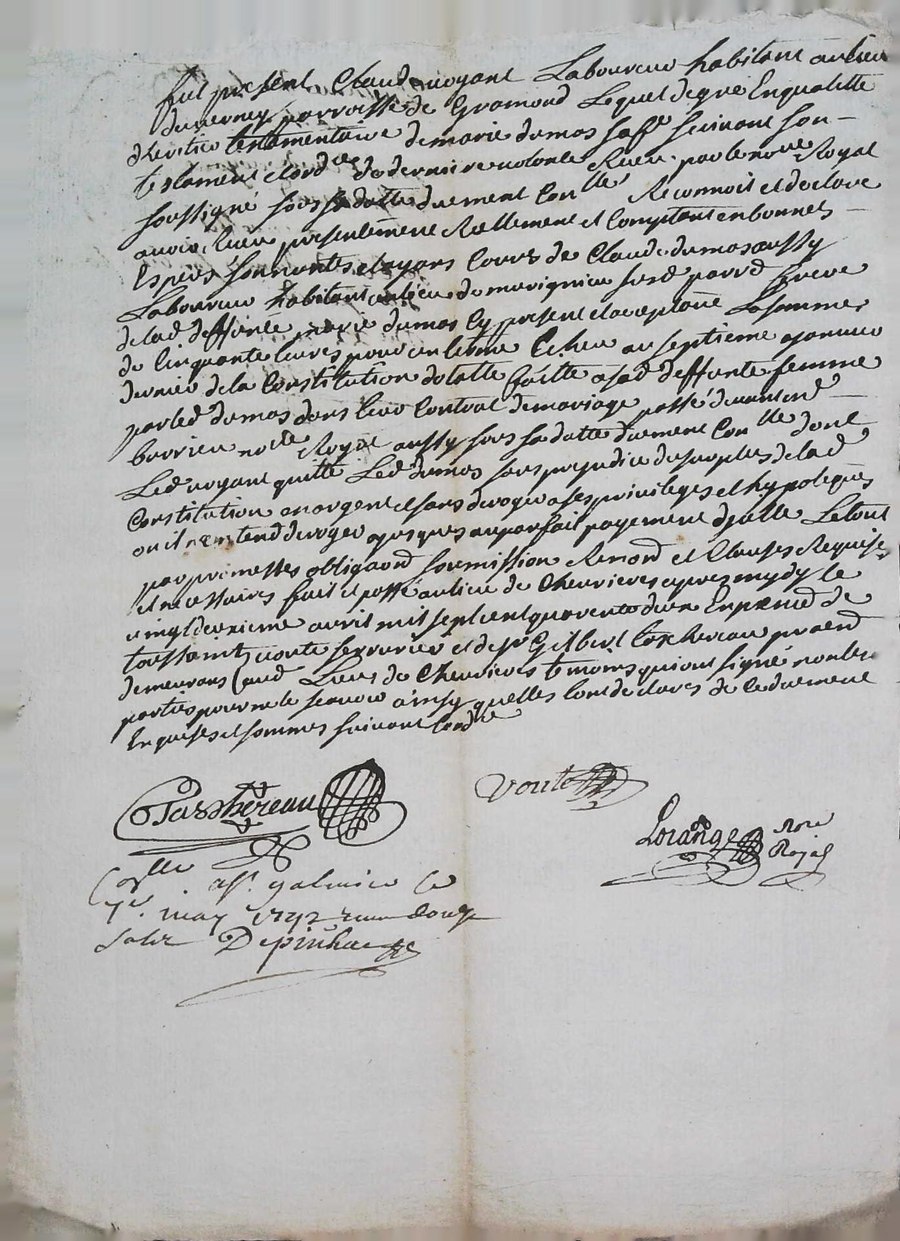 fut présent Claude voyant Laboureur habitant au lieu
duverney parroisse de Gramond Lequel degré En qualitté
d'héritier testamentaire de marie dumas sa fe suivant son
testament et ord de derniere volonté Receu par le nore Royal
soussigné sous sa datte duement Conllé Reconnoit et declare
avoir Receu presentement Reellement et Comptant en bonnes
Espèces sonnantes et ayans Cours de Claude dumas aussy
Laboureur habitant au lieu de marignieu susd parrd frere
de lad deffunte marie dumas Cy présent et acceptant La somme
de Cinquante livres pour un terme Echeu au septieme janvier
dernier de la Constitution dotalle faitte a sad deffunte femme
par led dumas dans leur Contrat de mariage passé devant
nore Royal aussy sous sa datte duement Conllé dont
Led voyant quitte Led dumas sans prejudice du surplus de lad
Constitution en argent et sans deroger a ses privileges et hypoteques
ou il n'entend deroger jusques au parfait payement d'jcelle Le tout
par promesses obligaons soumission Renond et Clauses Requises
et necessaires fait et passé au lieu de Chevrieres apres mydy le
vingt deuxieme avril mil sept cent quarente deux En presence de
toussaint voute serrurier et de sr Gilbert Coschereau praend
demeurans aud Lieu de Chevrieres temoins qui ont signé non les
parties pour ne le scavoir ainsy qu'elles l'ont declaré de ce duement
Enquises et sommés suivant Lordce
voute
Lorange Nore
Royal
Conllé a St galmier le
1er may 1742 Receu douze
sols Depinhac